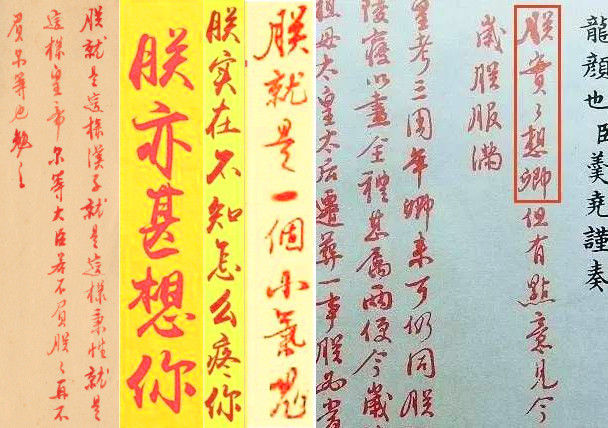 朕就是這樣漢子就是這樣秉性就是
這樣皇帝尔等大臣若不負朕〻再不
負尔等也勉之
朕亦甚想你
朕实在不知怎么疼你
朕就是一個小氣鬼
龍顏也臣羹堯謹奏
朕實〻想卿但有點意見今
歲朕服滿
皇考三周年卿来可仍同朕
陵寢以盡全禮甚屬兩便今歲
祖母太皇太后遷葬一事朕